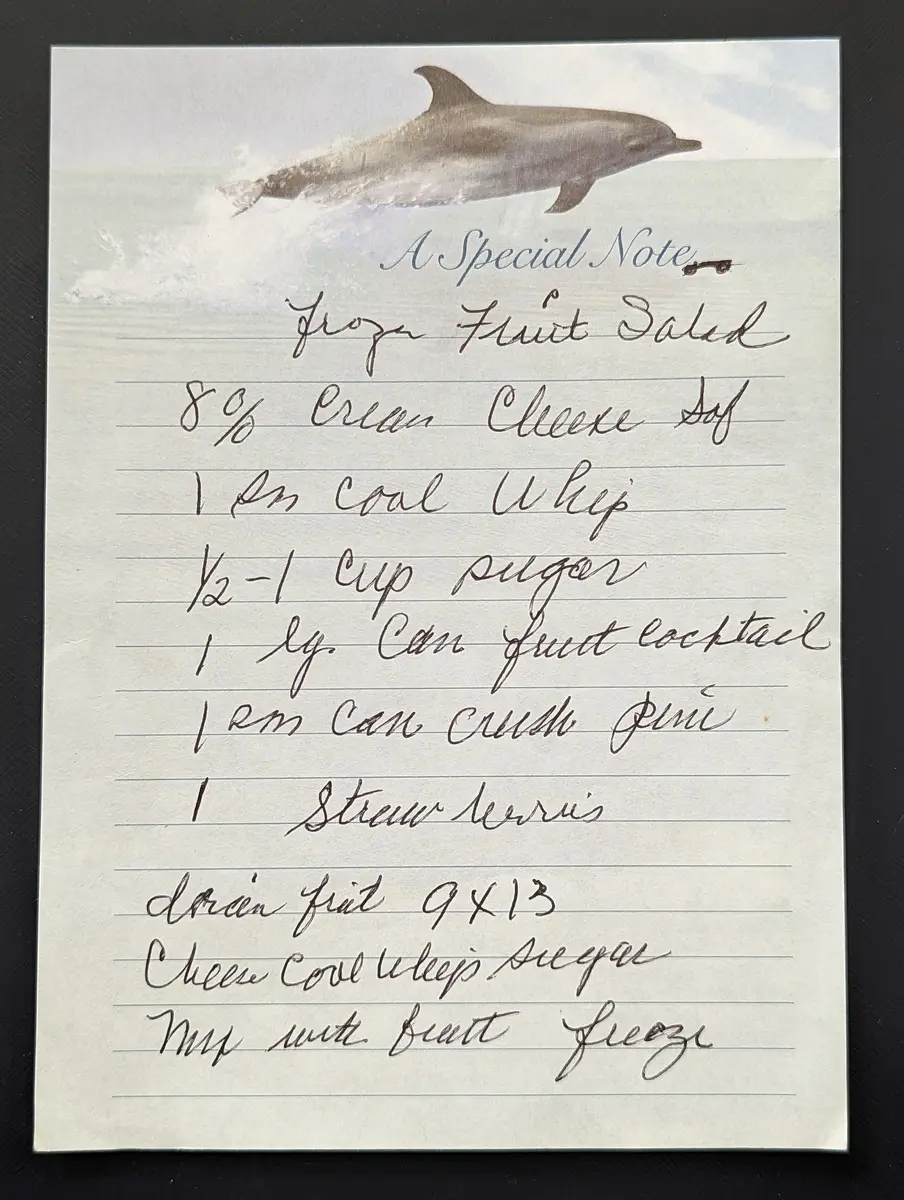 A Special Note
Frozen Fruit Salad
8 o/z Cream Cheese Sof
1 sm cool Whip
1/2-1 Cup sugar
1 lg. Can fruit Cocktail
1 sm Can crush pini
1 Strawberris
drain friut 9x13
Cheese Cool Whip sugar
Mix with fruit freeze